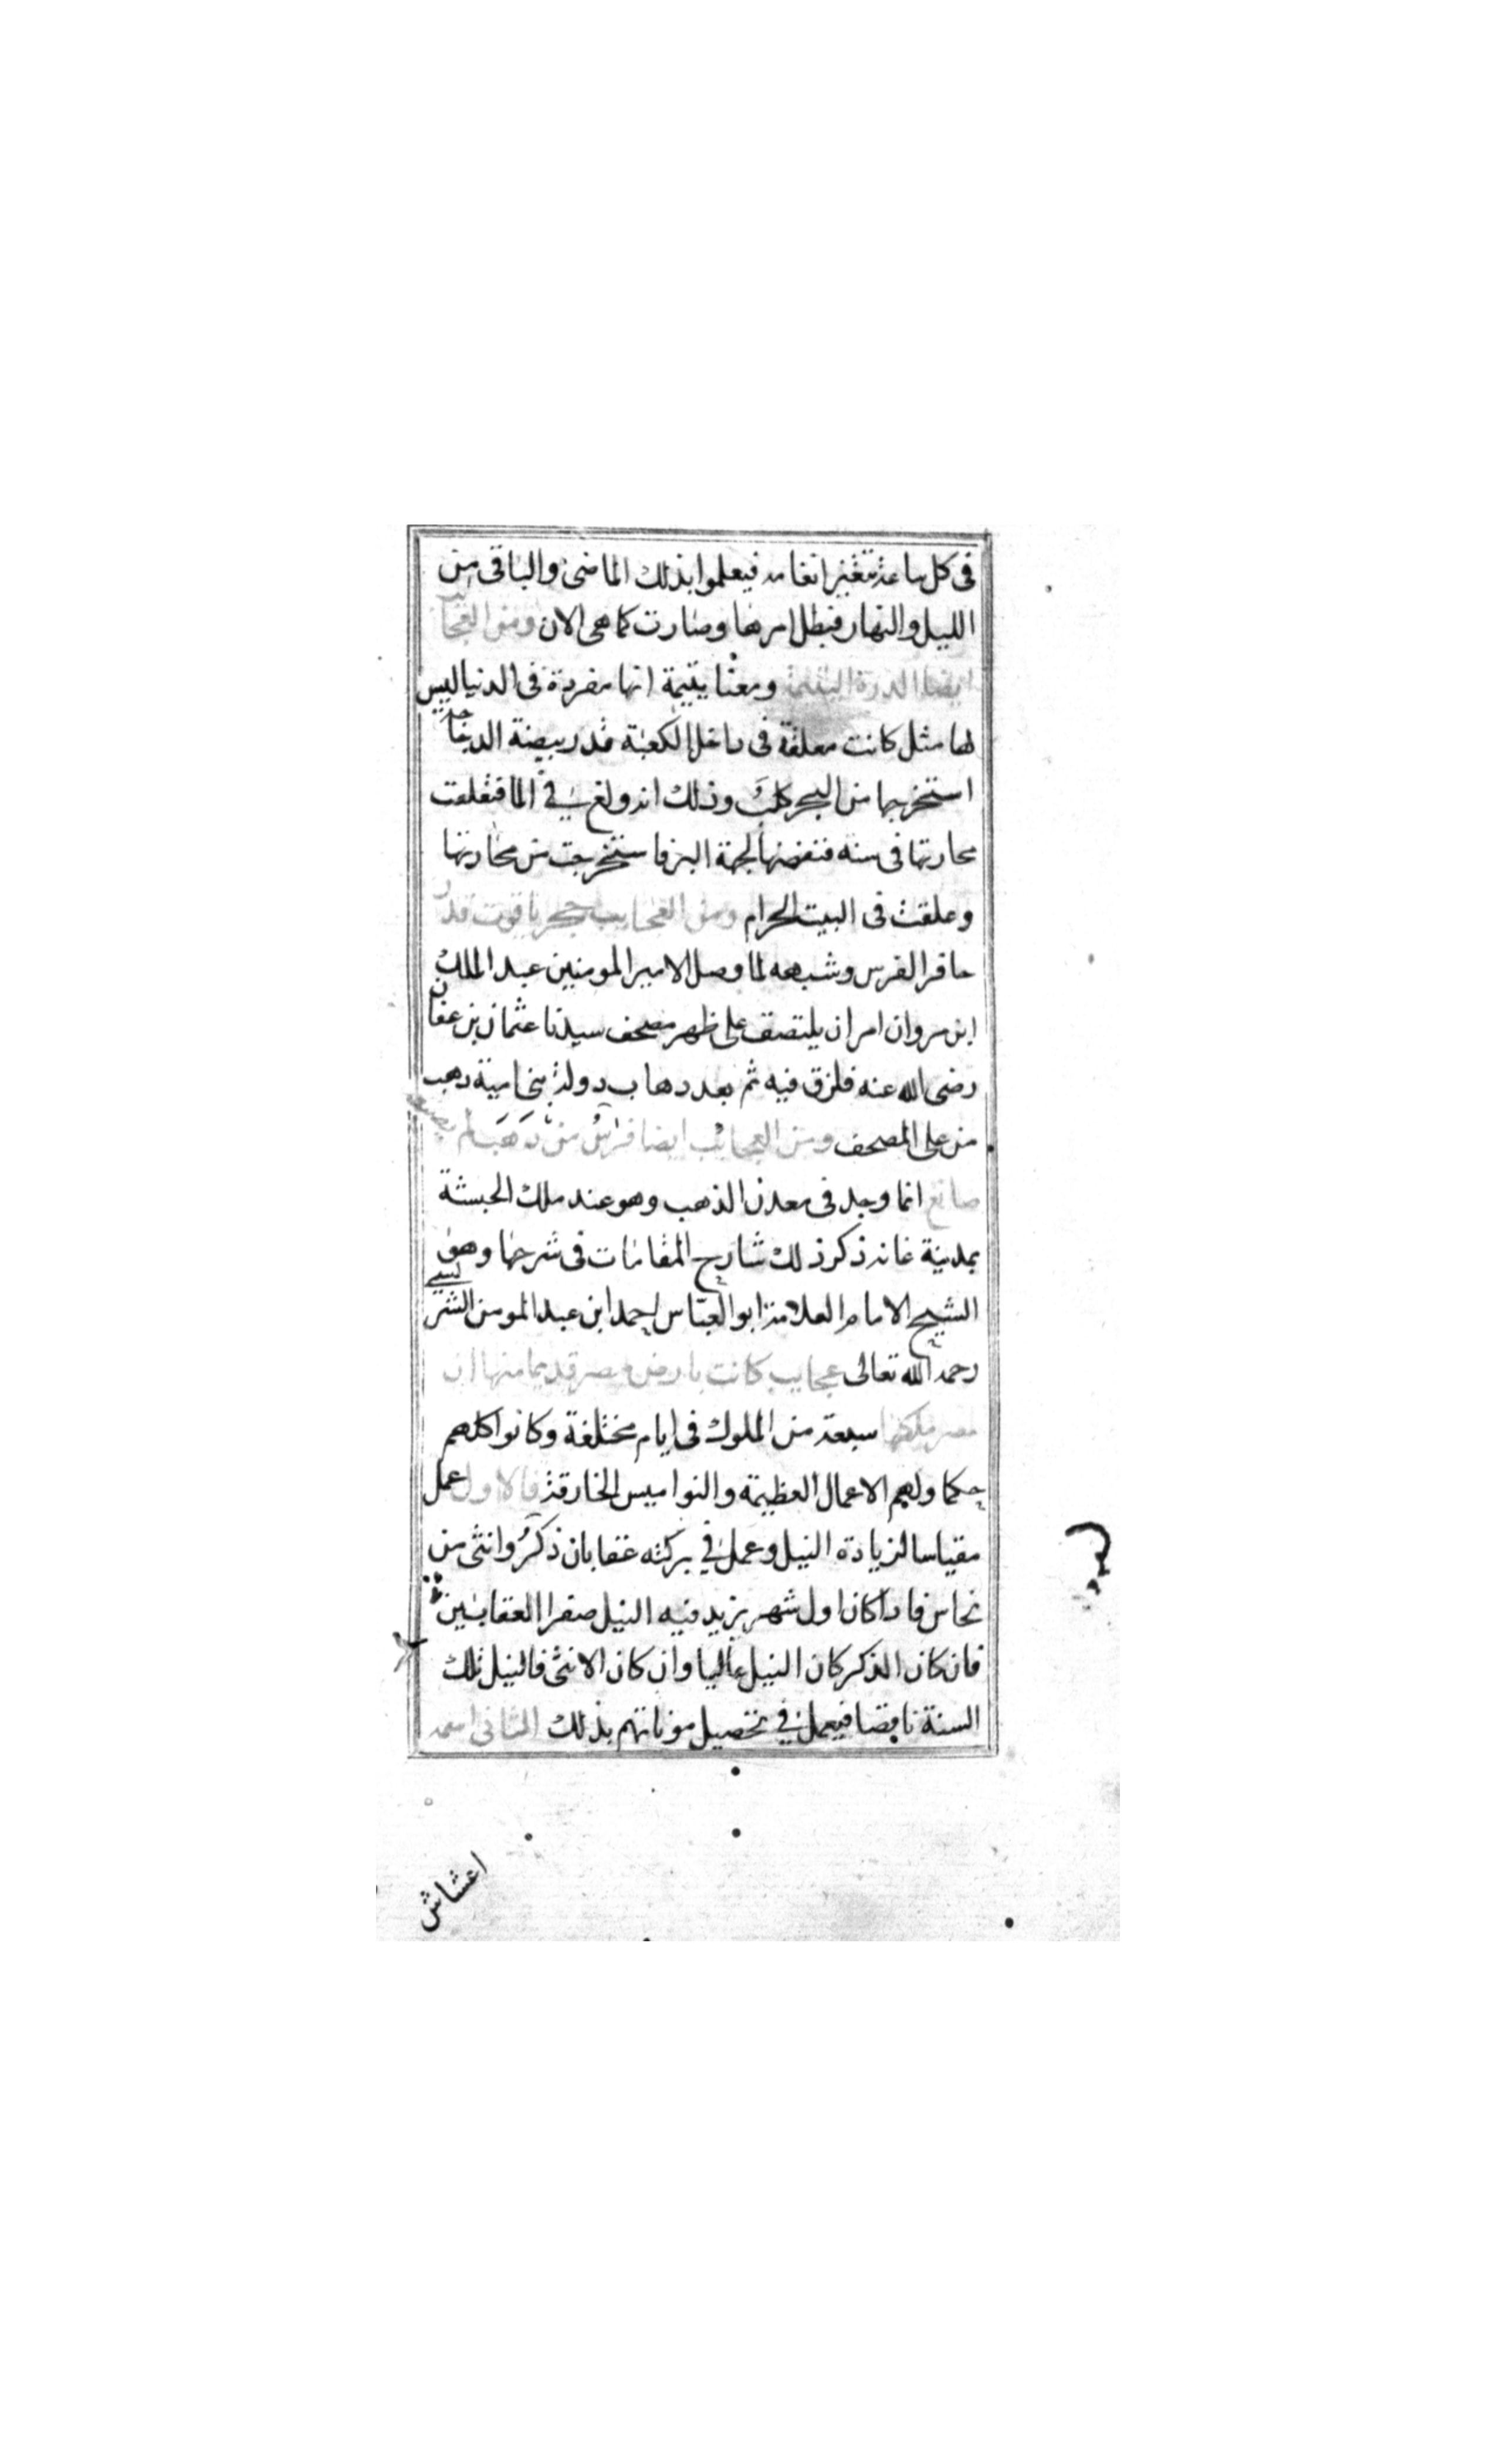 فى كل ساعة تتغير انغامه فيعلموا بذلك الماضى والباقى من
الليل والنهار فبطل امرها وصارت كما هى الان ومن العجا
ايضا الدرة اليتيمة ومعنا يتيمة انها مفردة فى الدنيا ليس
لها مثل كانت معلقة فى داخل الكعبة قدر بيضة الدجاجة
استخرجها من البحر كلب وذلك انه ولغ فى الما فتعلقت
محارتها فى سنه فنفضها لجهة البر فاستخرجت من محارتها
وعلقت فى البيت الحرام ومن العجايب حجر ياقوت قدر
حافر الفرس وشبهه لما وصل لامير المومنين عبد الملك
ابن مروان امر ان يلتصق على ظهر مصحف سيدنا عثمان بن عفان
رضى الله عنه فلزق فيه ثم بعد دهاب دولة بنى امية دهب
من على المصحف ومن العجائب ايضا فرس من دهب لم يصيغه
صايغ انما وجد فى معدن الذهب وهو عند ملك الحبشة
بمدينة غانه ذكر ذلك شارح المقامات فى شرحها وهو
الشيخ الامام العلامة ابو العباس احمد ابن عبد المومن الشريسى
رحمه الله تعالى عجايب كانت بارض مصر قديما منها ان
مصر ملكها سبعة من الملوك فى ايام مختلفة وكانوا كلهم
حكما ولهم الاعمال العظيمة والنواميس الخارقة فالاول عمل
مقياسا لزيادة النيل وعمل فى بركته عقابان ذكر وانثى من
نحاس فاداكان اول شهر يزيد فيه النيل صفرا العقابين
فان كان الذكر كان النيل عاليا وان كان الانثى فالنيل تلك
السنة ناقصا فيعمل فى تحصيل موناتهم بذلك الثانى اسمه
اعشاش